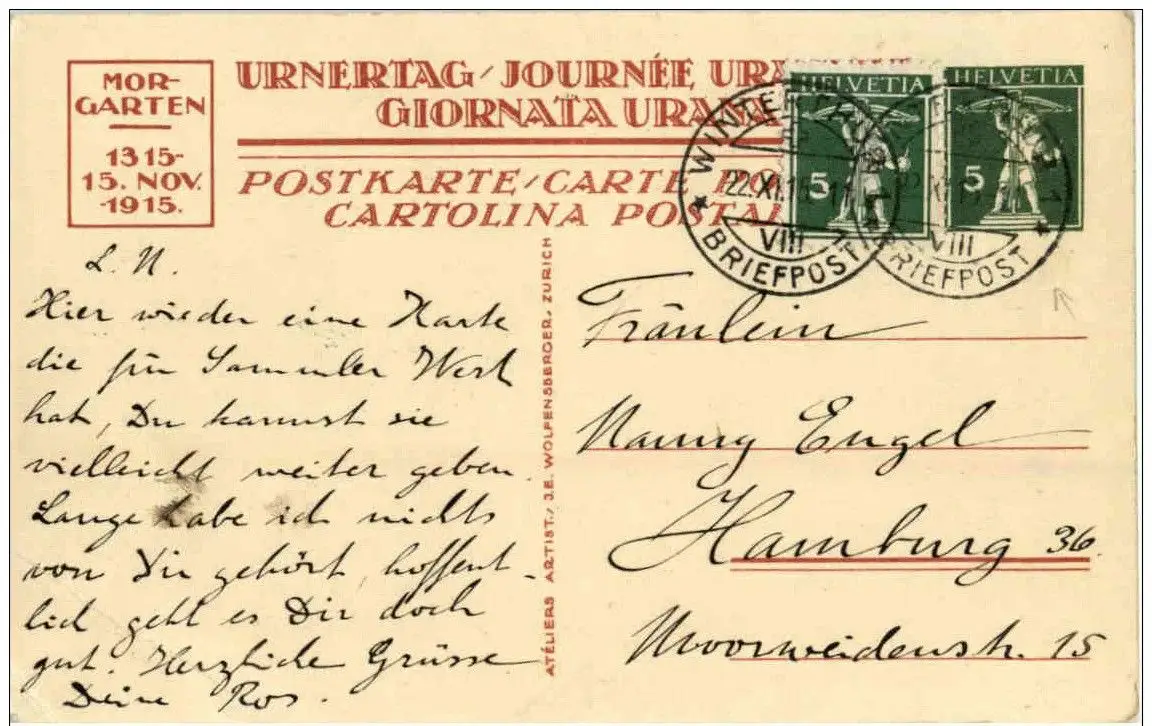 MOR-
GARTEN
1315-
15. NOV.
-1915.
URNERTAG / JOURNÉE
GIORNATA
POSTKARTE / CARTE
CARTOLINA
HELVETIA
5
HELVETIA
5
WINTERTHUR
22.XI.15
VIII
BRIEFPOST
VIII
BRIEFPOST
L. N.
Hier wieder eine Karte
die für Sammler Wert
hat, Du kannst sie
vielleicht weiter geben.
Lange habe ich nichts
von Dir gehört, hoffent-
lich geht es Dir doch
gut. Herzliche Grüsse
Deine Ros.
ATELIERS ARTIST. / J.E. WOLFENSBERGER, ZURICH
Fräulein
Nanny Engel
Hamburg 36.
Moorweidenstr. 15